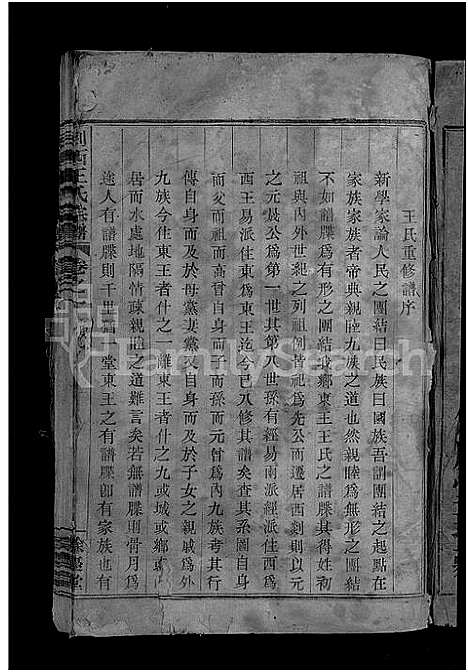 王氏重修譜序
新學家論人民之團結曰民族曰國族吾謂團結之起點在
家族家族者帝典親睦九族之道也然親睦爲無形之團結
不如譜牒爲有形之團結我鄉東王王氏之譜其得姓初
祖與內外世紀之列祖例皆祀爲先公而遷居西剡則以元
之元晟公爲第一世其第八世孫有經易兩派經派住西爲
西王易派住東爲東王迄今已八修其譜矣查其系圖自身
而父而祖而高曾自身而子而孫而元曾爲內九族考其行
傳自身而及於母黨妻黨又自身而及於子女之親戚爲外
九族今住東王者什之一離東王者什之九或城或鄉或
居而水處地隔情疎親睦之道難言矣若無譜牒則骨月爲
途人有譜牒則千里 一堂東王之有譜牒卽有家族也有
王氏宗譜
卷之
餘慶堂
FamilySearch